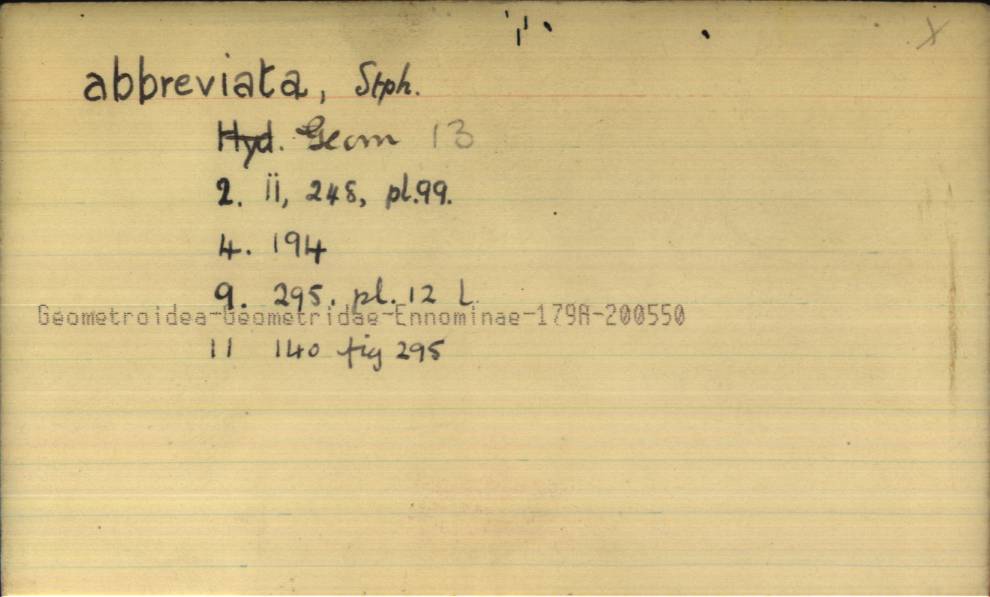 X
abbreviata, Stph.
Hyd. Geom 13
2. ii, 248, pl.99.
4. 194
9. 295. pl. 12 L.
Geometroidea-Geometridae-Ennominae-179A-200550
11 140 fig 295